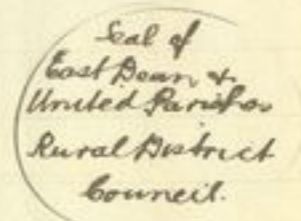 Seal of
East Dean &
United Parishes
Rural District
Council.